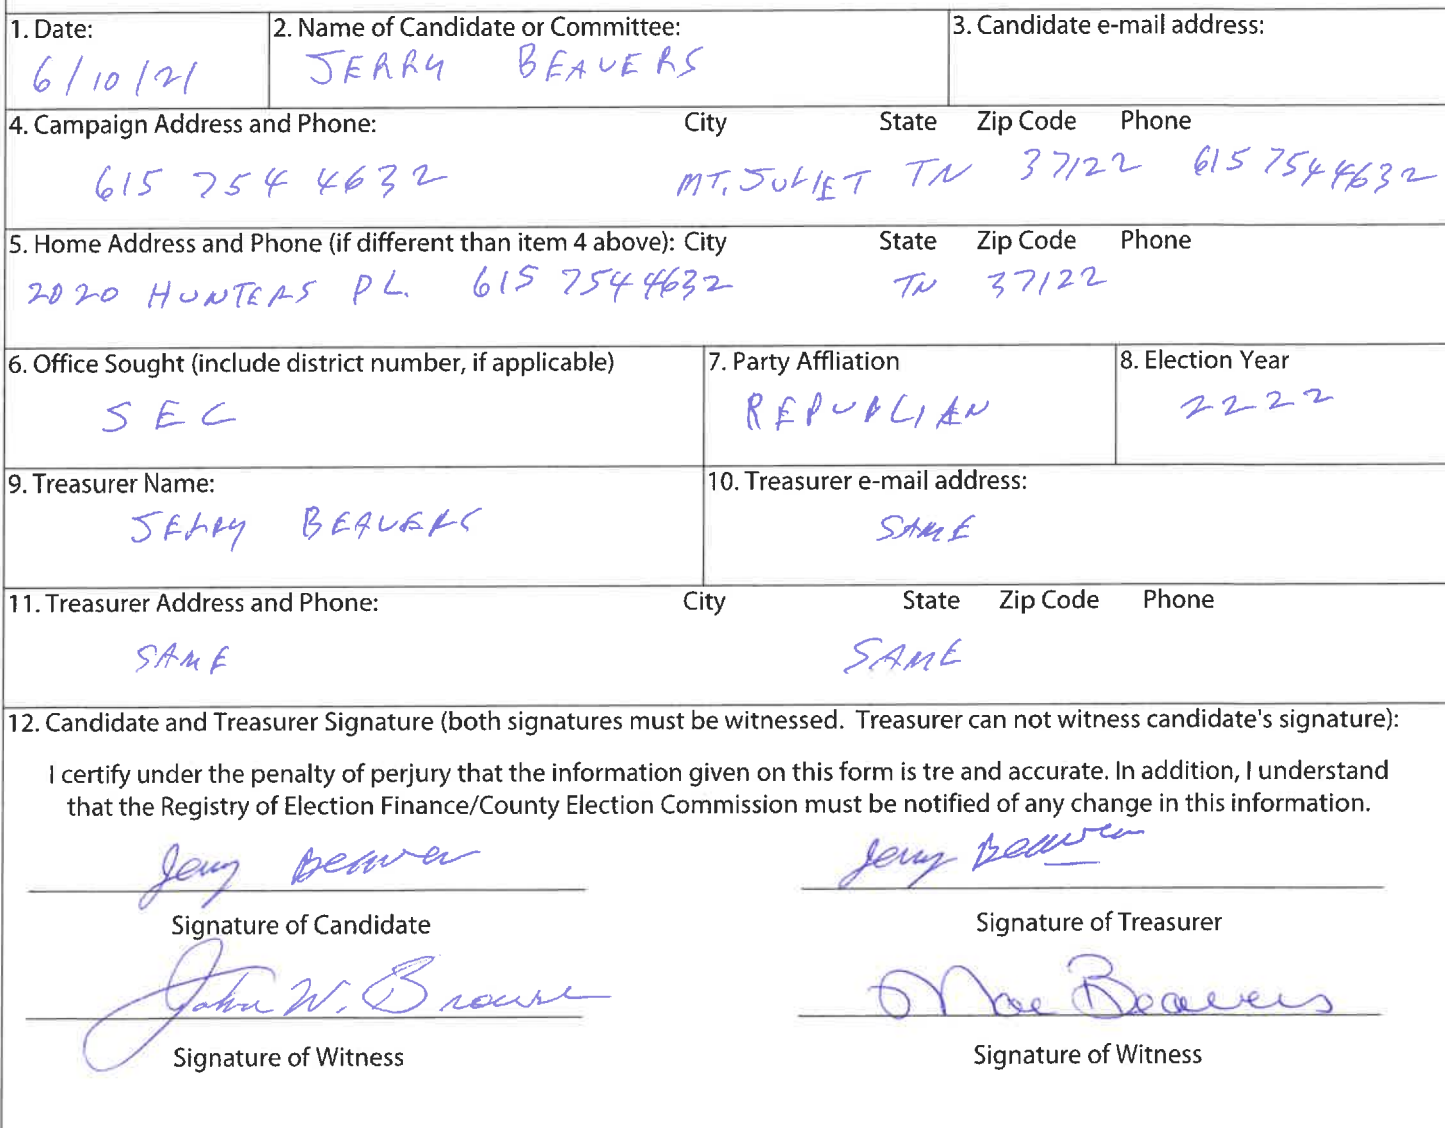 1. Date: 2. Name of Candidate or Committee: 3. Candidate e-mail address:
6/10/21 JERRY BEAVERS
4. Campaign Address and Phone: City State Zip Code Phone
615 754 4632 MT. JULIET TN 37122 615 754 4632
5. Home Address and Phone (if different than item 4 above): City State Zip Code Phone
2020 HUNTERS PL. 615 754 4632 TN 37122
6. Office Sought (include district number, if applicable) 7. Party Affliation 8. Election Year
SEC REPUPLIAN 2222
9. Treasurer Name: 10. Treasurer e-mail address:
JERRY BEAVERS SAME
11. Treasurer Address and Phone: City State Zip Code Phone
SAME SAME
12. Candidate and Treasurer Signature (both signatures must be witnessed. Treasurer can not witness candidate's signature):
I certify under the penalty of perjury that the information given on this form is tre and accurate. In addition, I understand
that the Registry of Election Finance/County Election Commission must be notified of any change in this information.
Jerry Beavers Jerry Beavers
Signature of Candidate Signature of Treasurer
John W. Mae Beavers
Signature of Witness Signature of Witness